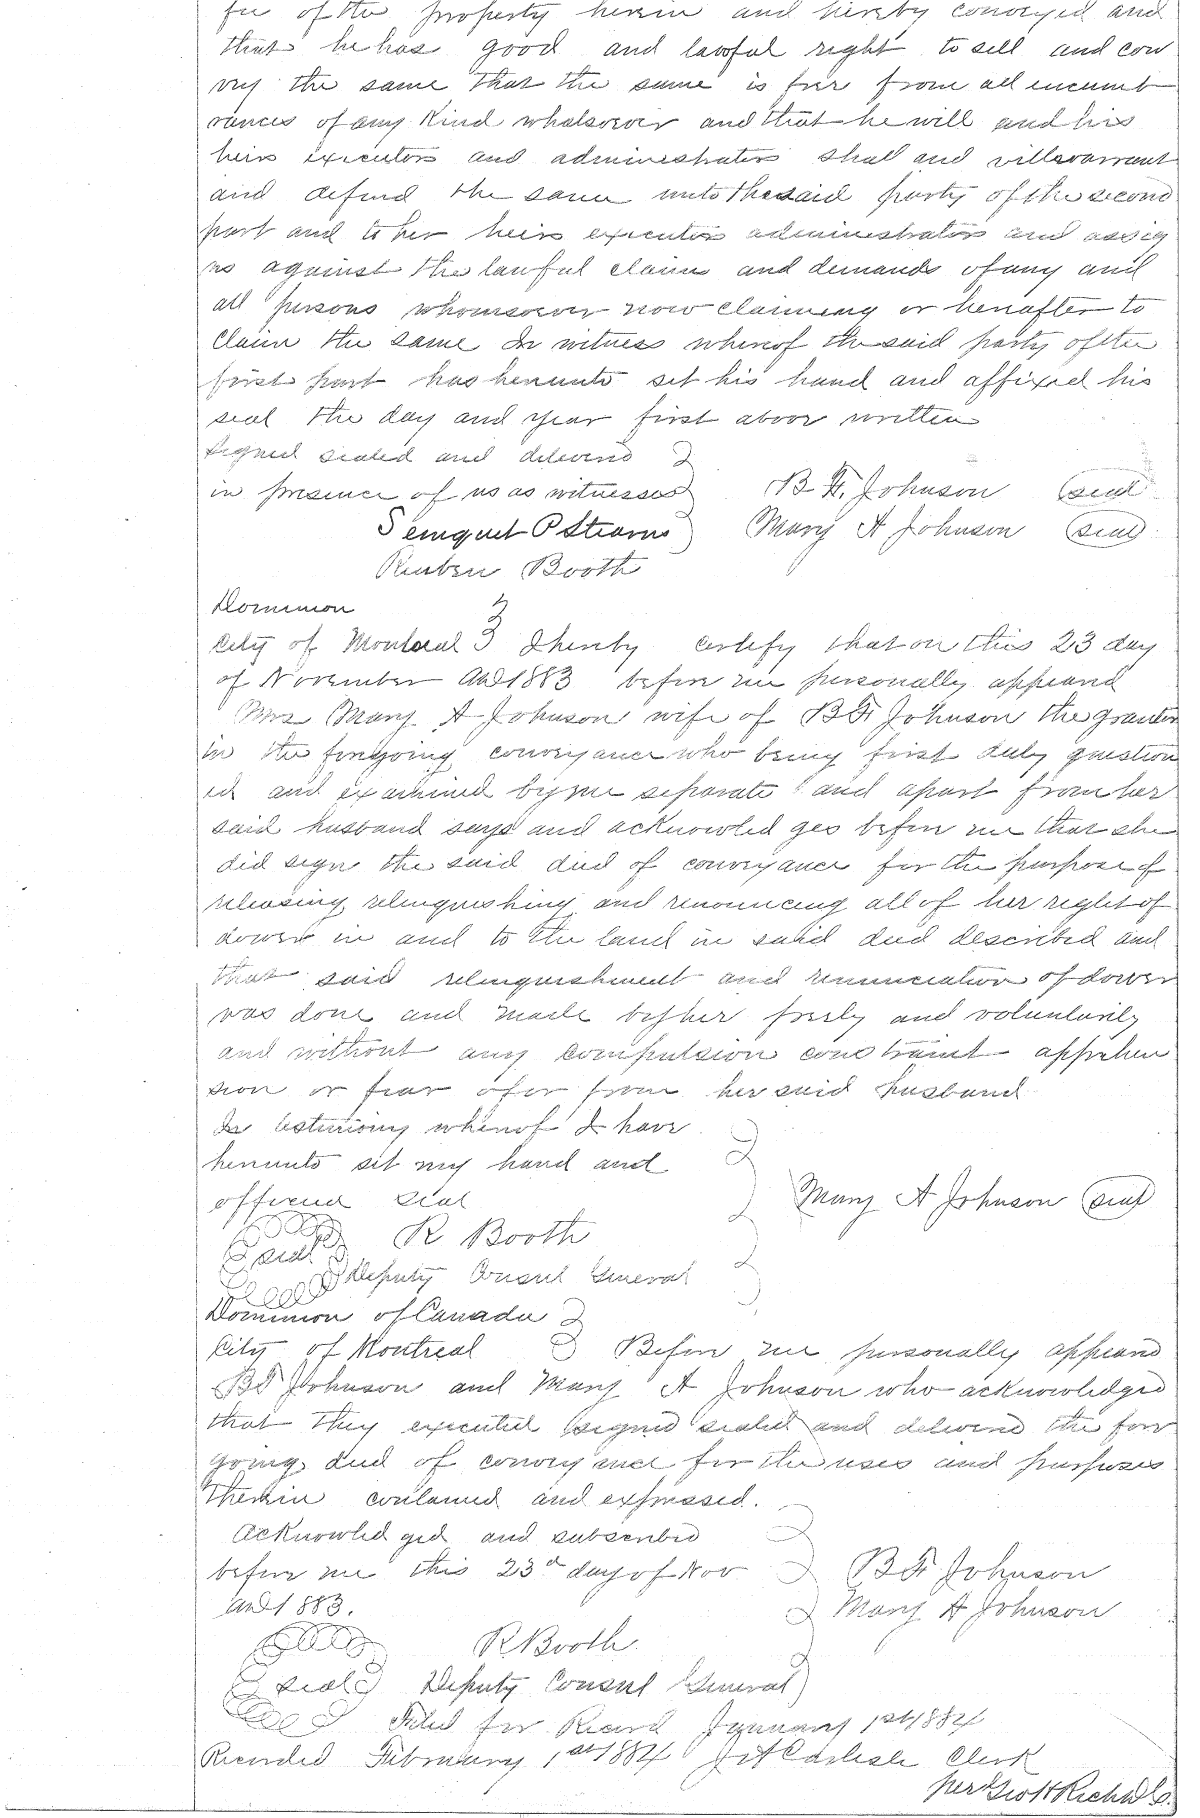 fee of the property herein and hereby conveyed and
that he has good and lawful right to sell and con
vey the same that the same is free from all encumb
rances of any Kind whatsoever and that he will and his
heirs executors and administrators shall and will warrant
and defend the same unto the said party of the second
part and to her heirs executors administrators and assig
ns against the lawful claims and demands of any and
all persons whomsoever now claiming or hereafter to
claim the same In witness whereof the said party of the
first part has hereunto set his hand and affixed his
seal the day and year first above written
Signed sealed and delivered
in presence of us as witnesses B. F. Johnson (seal)
P Stearns Mary A Johnson (seal)
Reuben Booth
Dominion
City of Montreal I hereby certify that on this 23 day
of November AD 1883 before me personally appeared
Mrs Mary A Johnson wife of B F Johnson the grantor
in the foregoing conveyance who being first duly question
ed and examined by me separate and apart from her
said husband says and acknowledges before me that she
did sign the said deed of conveyance for the purpose of
releasing, relinquishing and renouncing all of her right of
dower in and to the land in said deed described and
that said relinquishment and renunciation of dower
was done and made by her freely and voluntarily
and without any compulsion constraint apprehen
sion or fear of or from her said husband
In testimony whereof I have
hereunto set my hand and
official seal Mary A Johnson (seal)
seal R Booth
Deputy Consul General
Dominion of Canada
City of Montreal Before me personally appeared
B F Johnson and Mary A Johnson who acknowledged
that they executed signed sealed and delivered the fore
going deed of conveyance for the uses and purposes
therein contained and expressed.
Acknowledged and subscribed
before me this 23d day of Nov B F Johnson
AD 1883. Mary A Johnson
R Booth
seal Deputy Consul General
Filed for Record January 1st 1884
Recorded February 1st 1884 J A Carlisle Clerk
per Geo H